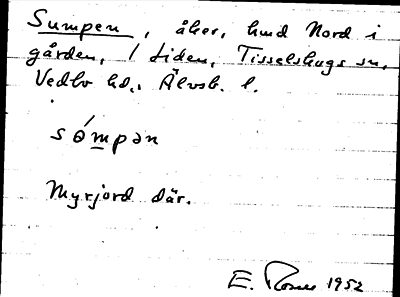 Sumpen, åker, hmd Nord i
gården, 1 Liden, Tisselskogs sn,
Vedbo hd., Älvsb. l.
sǿmpən
Myrjord där.
E. Rosen 1952